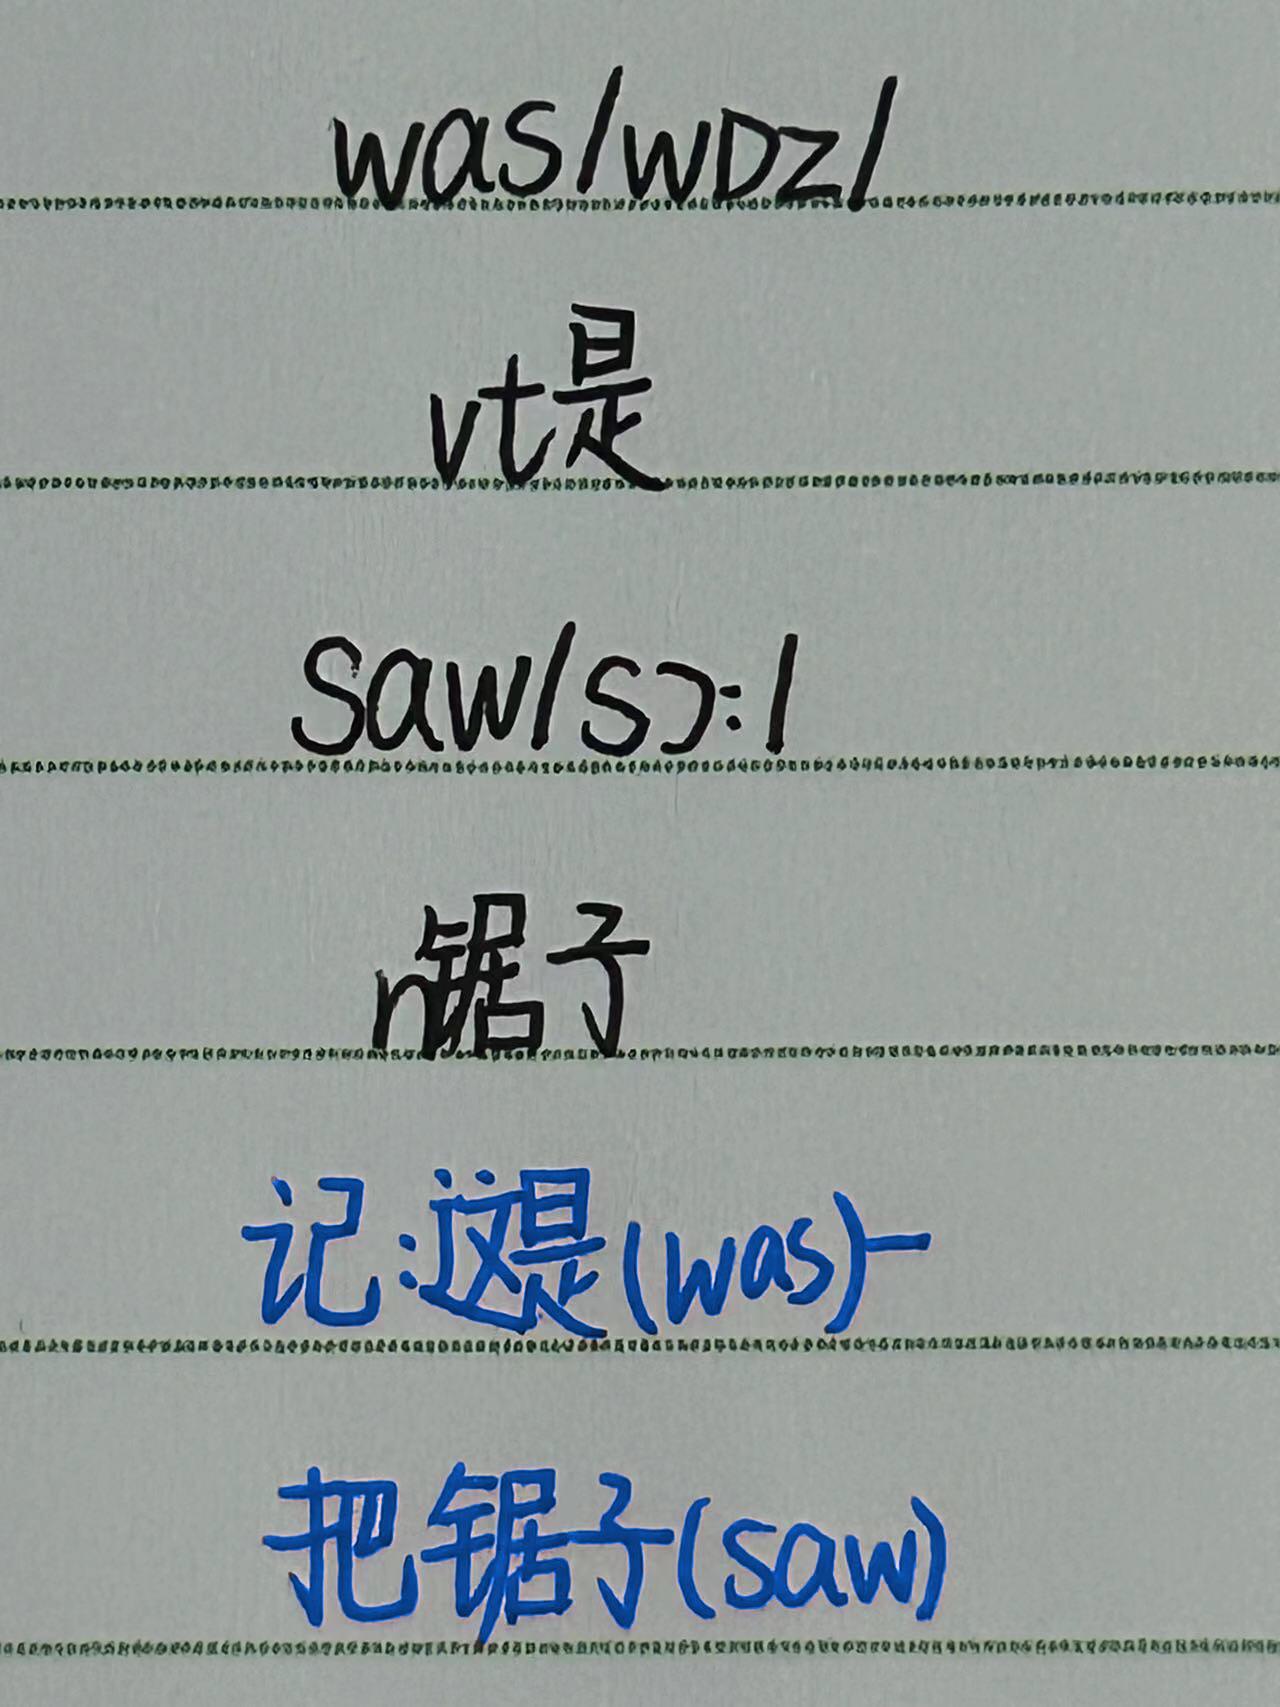 was/wɒz/
vt是
saw/sɔ:/
n锯子
记:这是(was)一
把锯子(saw)